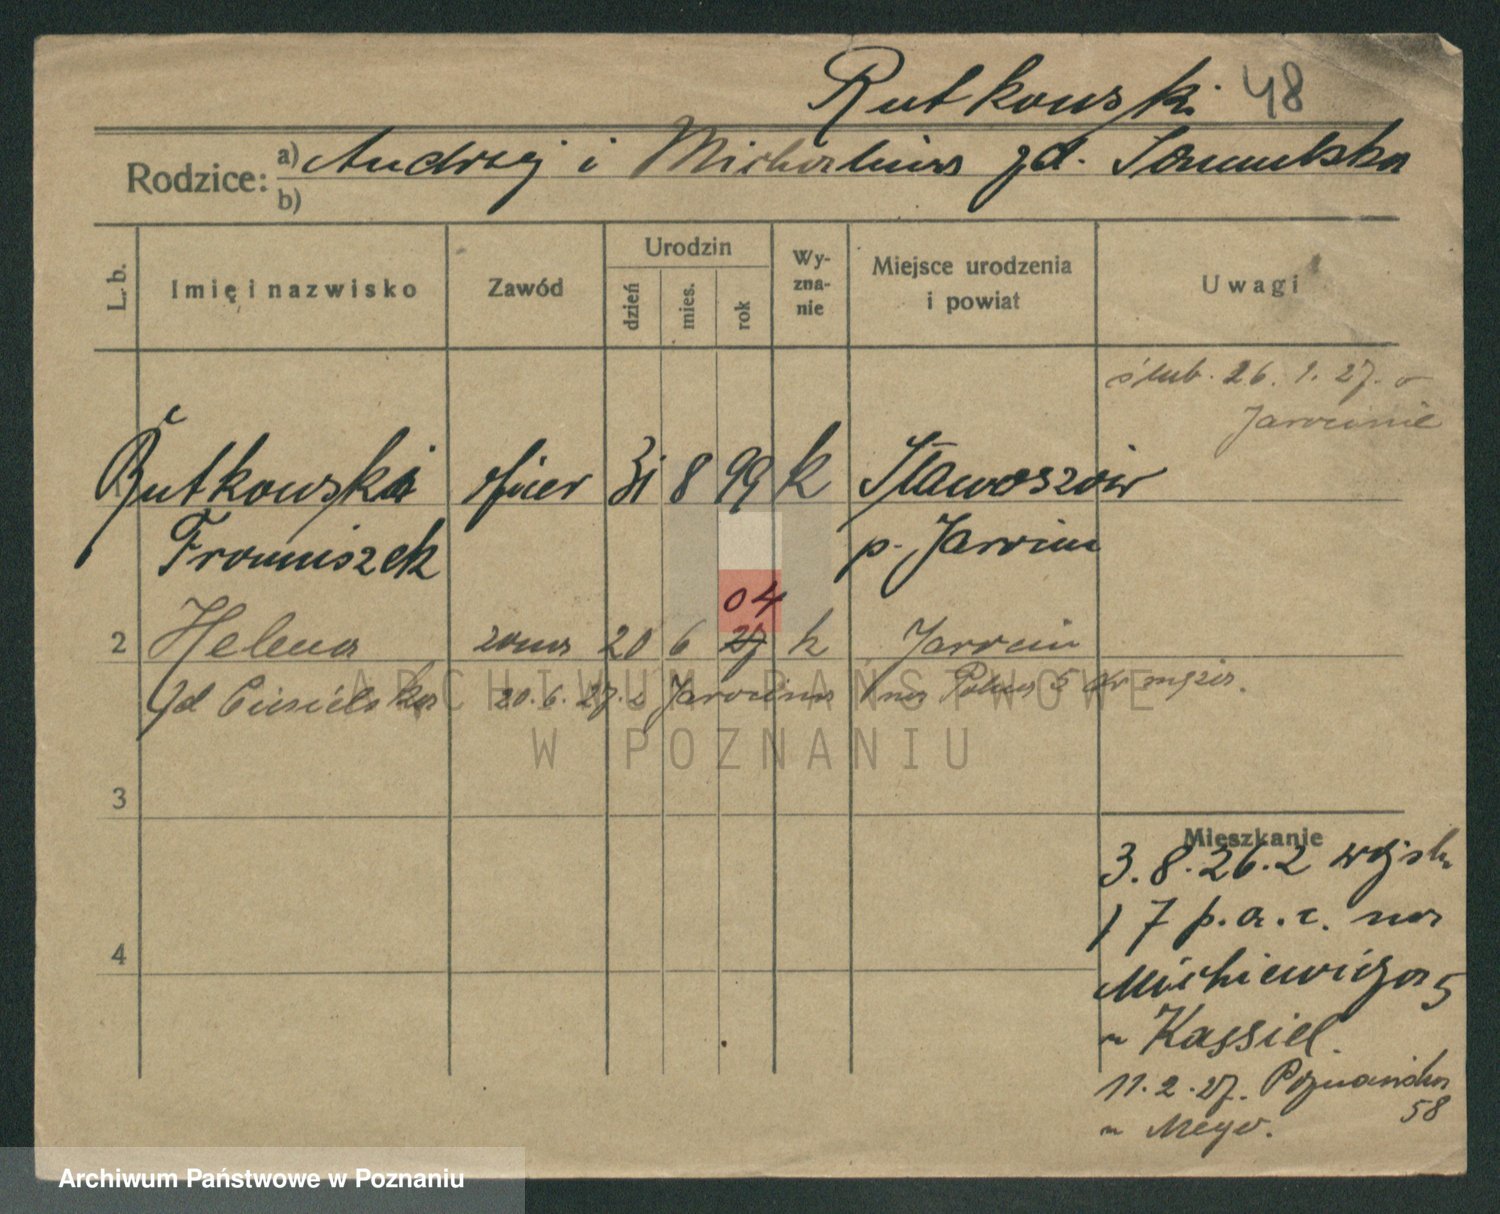 Rutkowski 48
Rodzice: a) Andrzej i Michalina zd.
b)
L. b.
Imię i nazwisko
Zawód
Urodzin
dzień
mies.
rok
Wy-
zna-
nie
Miejsce urodzenia
i powiat
Uwagi
ślub. 26. 1. 27. w
Jarocinie
Rutkowski oficer 31 8 99 k Stawoszów
Franciszek p. Jarocin
04
2 Helena żona 20 6 27 k Jarocin
zd Ciesielska 20.6.27. z Jarocina na 5 do męża.
ARCHIWUM PAŃSTWOWE
W POZNANIU
3
4
Mieszkanie
3.8.26. z wojsk.
17 p.a.c. na
Mickiewicza 5
u Kassiel.
11.2.27. Poznańska
58
u Meyer.
Archiwum Państwowe w Poznaniu